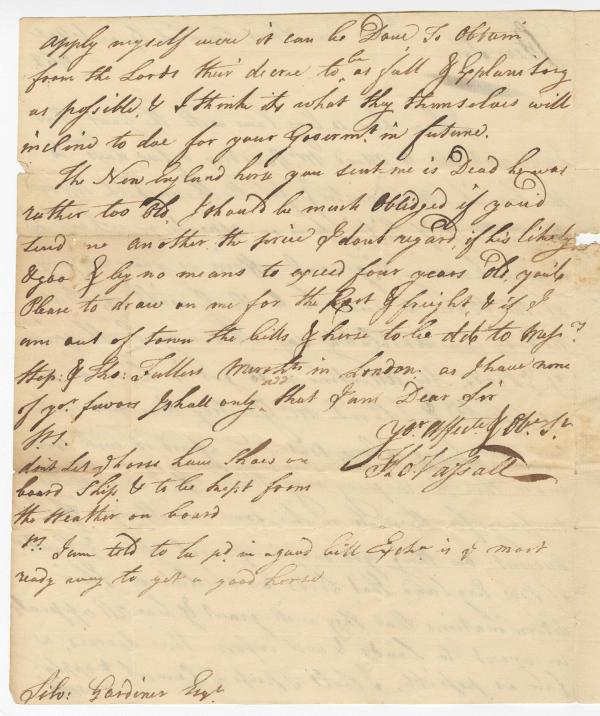 apply myself were it can be Done To Obtain
from the Lords their decree to be as full & Explanatory
as possible, & I think its what they themselves will
incline to doe for your Governmt. in future.
The New England horse you sent me is Dead he was
rather too Old. I should be much Obliged if you'd
send me another the price I dont regard, if his likely
& good & by no means to exceed four years Old, you'l
Please to draw on me for the Cost & freight, & if I
am out of town the bills & horse to be dld to Messrs.
Step: & Tho: Fullers Merchts in London. as I have none
of yor. favors I shall only add that I am Dear Sir
Yor. Affecte. & Obe. St.
Tho. Vassall
P.S.
dont Let ye horse have Shoes on
board Ship, & to be kept from
the Weather on board
PS. I am told to be pd. in a good bill Exche. is ye most
ready away to get a good horse
Silv: Gardiner Esqr.